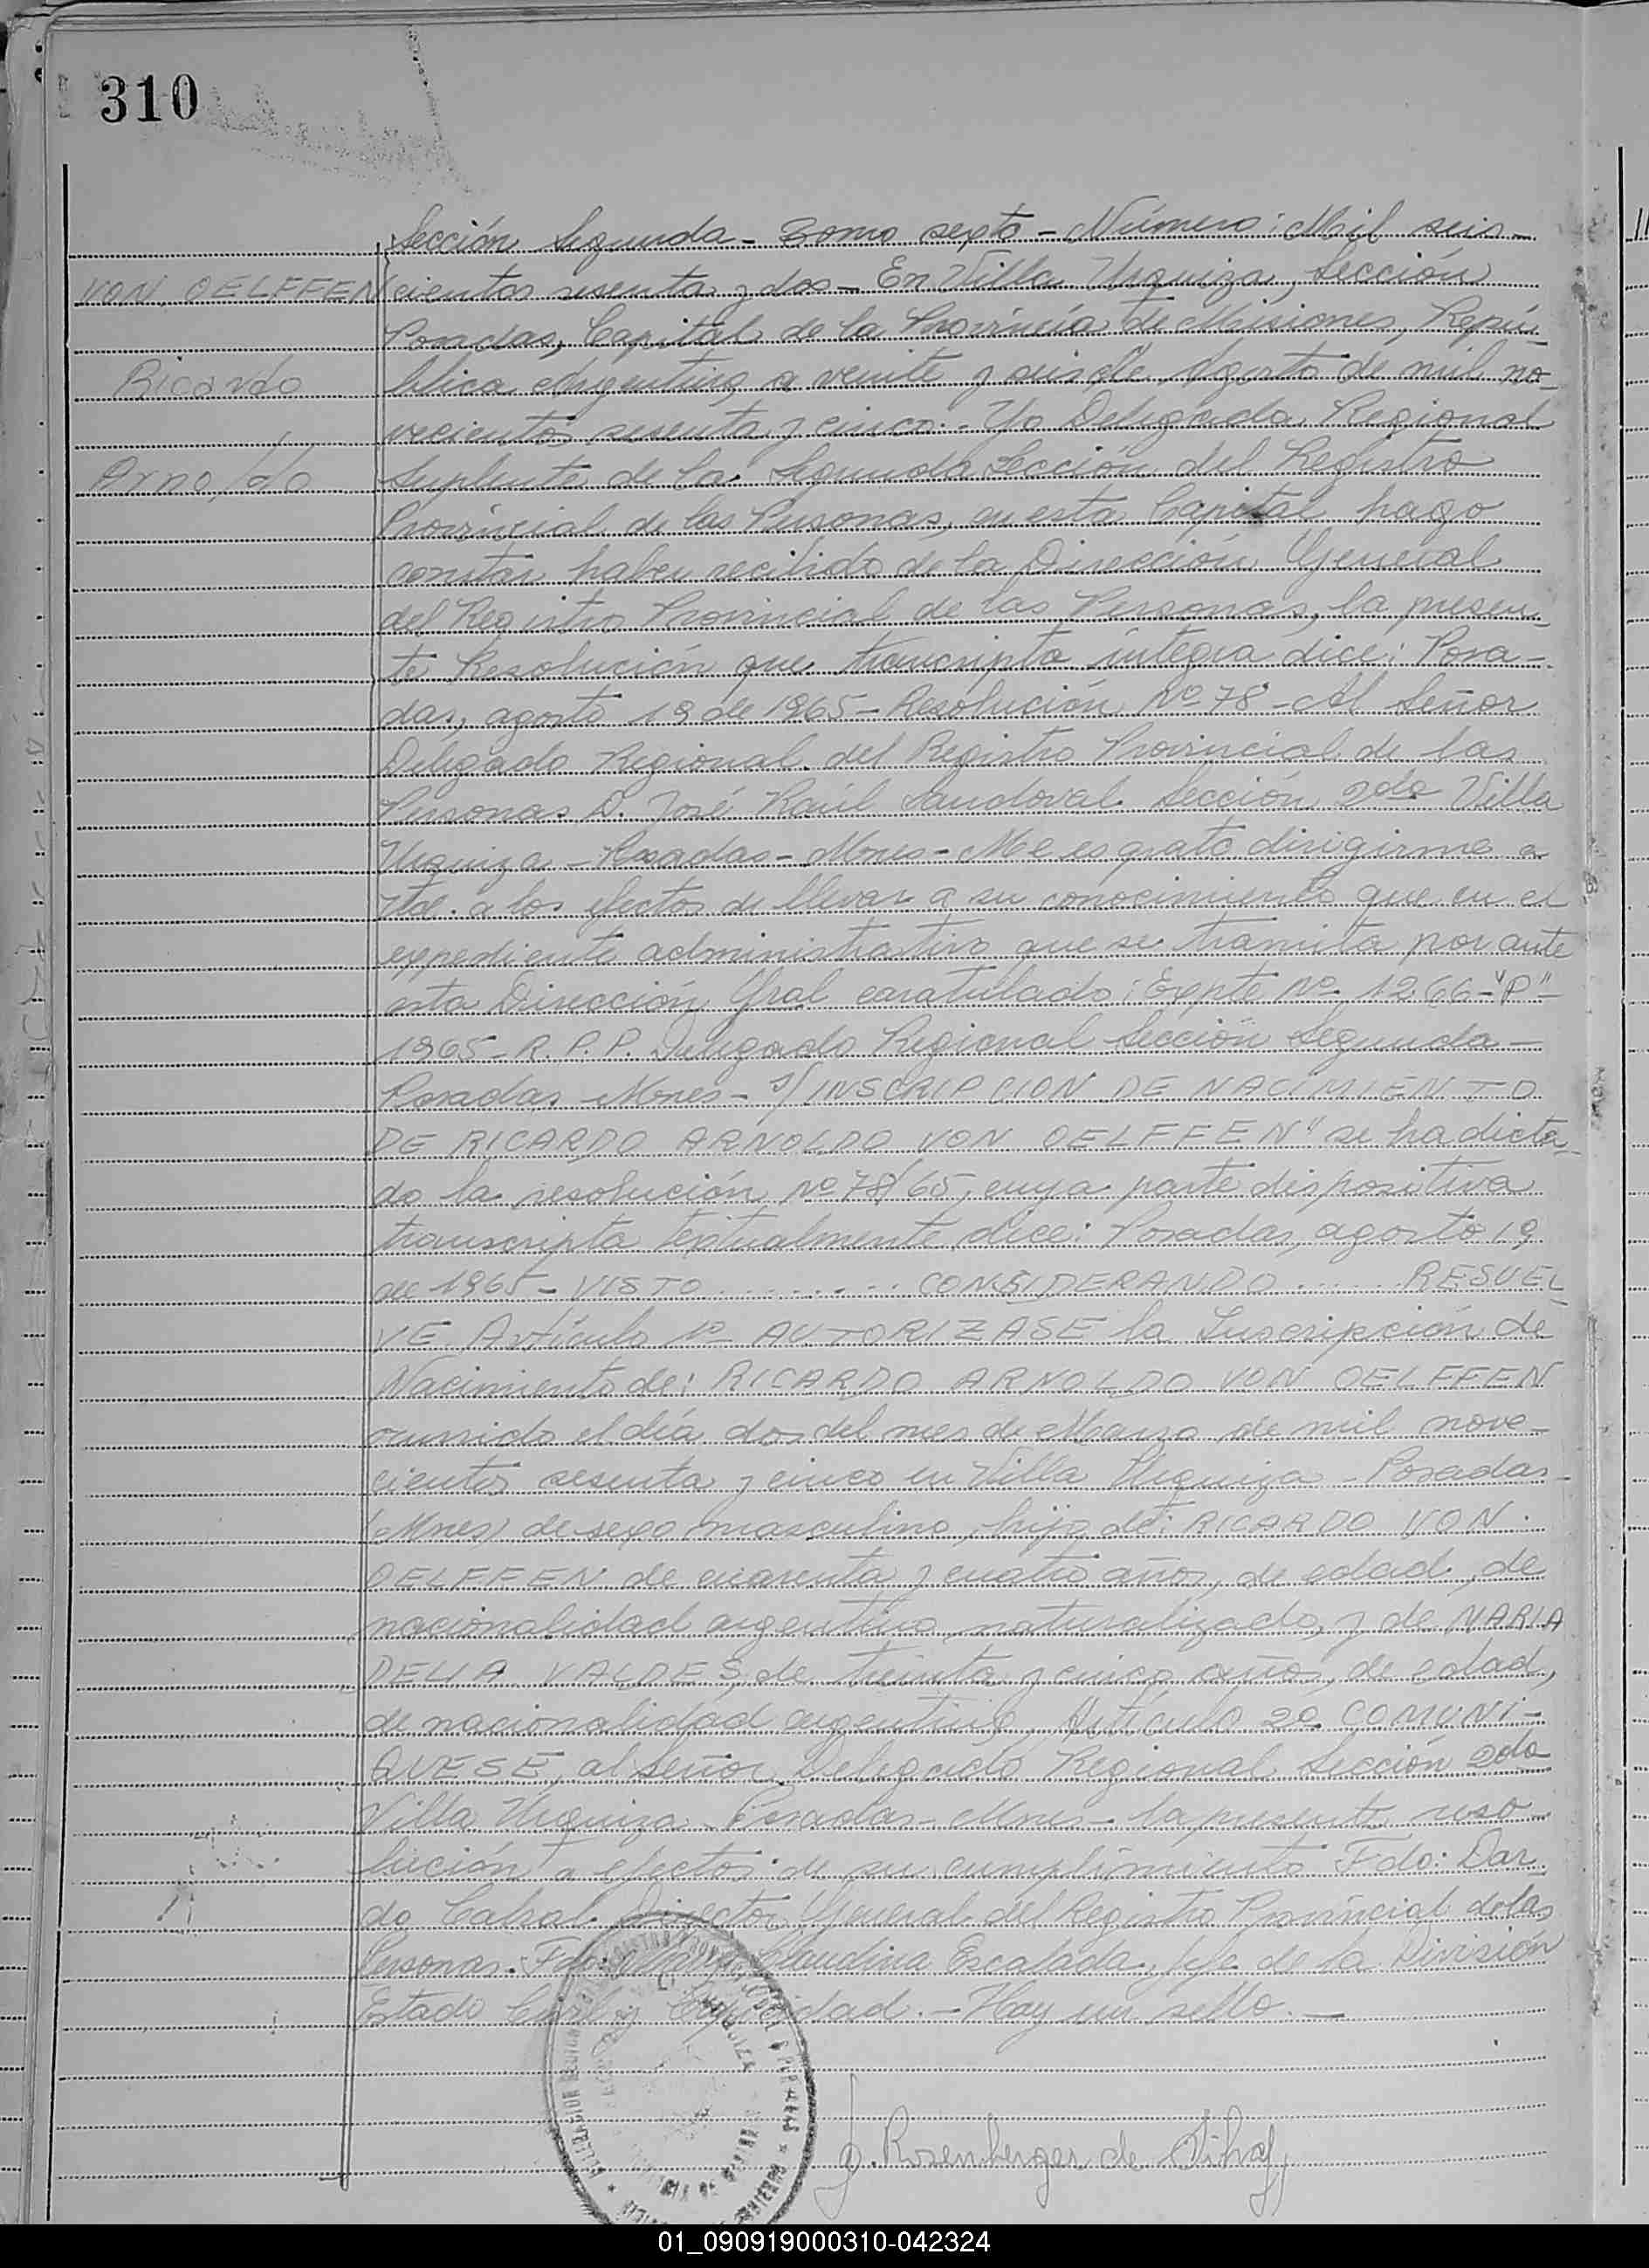 310
Sección Segunda - Tomo sexto - Número: Mil seis-
VON OELFFEN
cientos sesenta y dos - En Villa Urquiza, Sección
Posadas, Capital de la Provincia de Misiones, Repú-
Ricardo
blica Argentina, a veinte y seis de Agosto de mil no-
vecientos sesenta y cinco.- Yo Delegada Regional
Arnoldo
Suplente de la Segunda Sección del Registro
Provincial de las Personas, en esta Capital hago
constar haber recibido de la Dirección General
del Registro Provincial de las Personas, la presen-
te Resolución que transcripta íntegra dice: Posa-
das, agosto 19 de 1965 - Resolución Nº 78 - Al Señor
Delegado Regional del Registro Provincial de las
Personas D. José Raúl Sandoval Sección 2da Villa
Urquiza - Posadas - Mnes - Me es grato dirigirme a
Ud. a los efectos de llevar a su conocimiento que en el
expediente administrativo que se tramita por ante
esta Dirección Gral caratulado: Expte Nº 1266-"P"-
1965 - R.P.P. Delegado Regional Sección Segunda -
Posadas Mnes - s/ INSCRIPCION DE NACIMIENTO
DE RICARDO ARNOLDO VON OELFFEN" se ha dicta-
do la resolución Nº 78/65, cuya parte dispositiva
transcripta textualmente dice: Posadas, agosto 19
de 1965 - VISTO ......... CONSIDERANDO ...... RESUEL-
VE Artículo 1º AUTORIZASE la Inscripción de
Nacimiento de: RICARDO ARNOLDO VON OELFFEN
ocurrido el día dos del mes de Marzo de mil nove-
cientos sesenta y cinco en Villa Urquiza - Posadas -
(Mnes) de sexo masculino, hijo de: RICARDO VON
OELFFEN de cuarenta y cuatro años, de edad, de
nacionalidad argentino naturalizado, y de MARIA
DELIA VALDES, de treinta y cinco años, de edad,
de nacionalidad argentina, Artículo 2º COMUNI-
QUESE, al señor Delegado Regional Sección 2da
Villa Urquiza Posadas - Mnes - la presente reso-
lución a efectos de su cumplimiento Fdo: Dar-
do Cabral Director General del Registro Provincial de las
Personas. Fdo: Claudina Escalada, Jefe de la División
Estado Civil y Capacidad. - Hay un sello. -
J. Rosenberger de
01_090919000310-042324